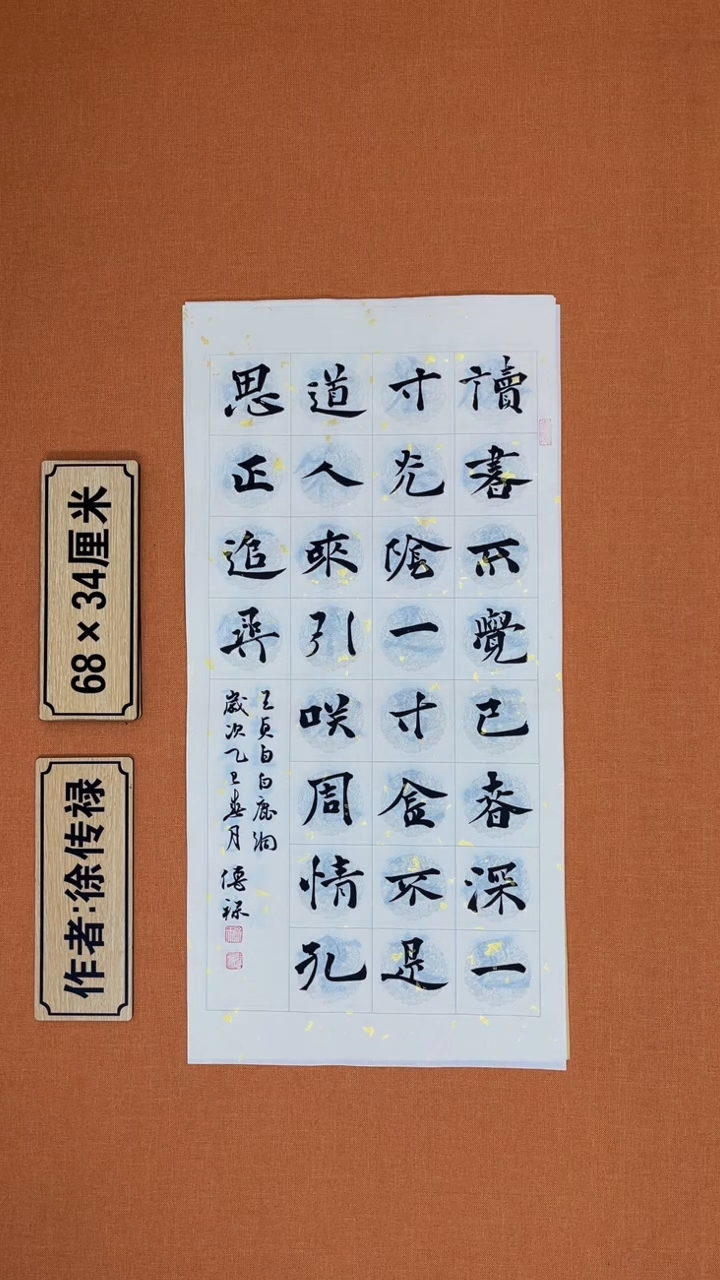 讀書不覺已春深一
寸光陰一寸金不是
道人來引咲周情孔
思正追尋
王貞白白鹿洞
歲次乙巳春月 傳祿
68×34厘米
作者:徐传禄